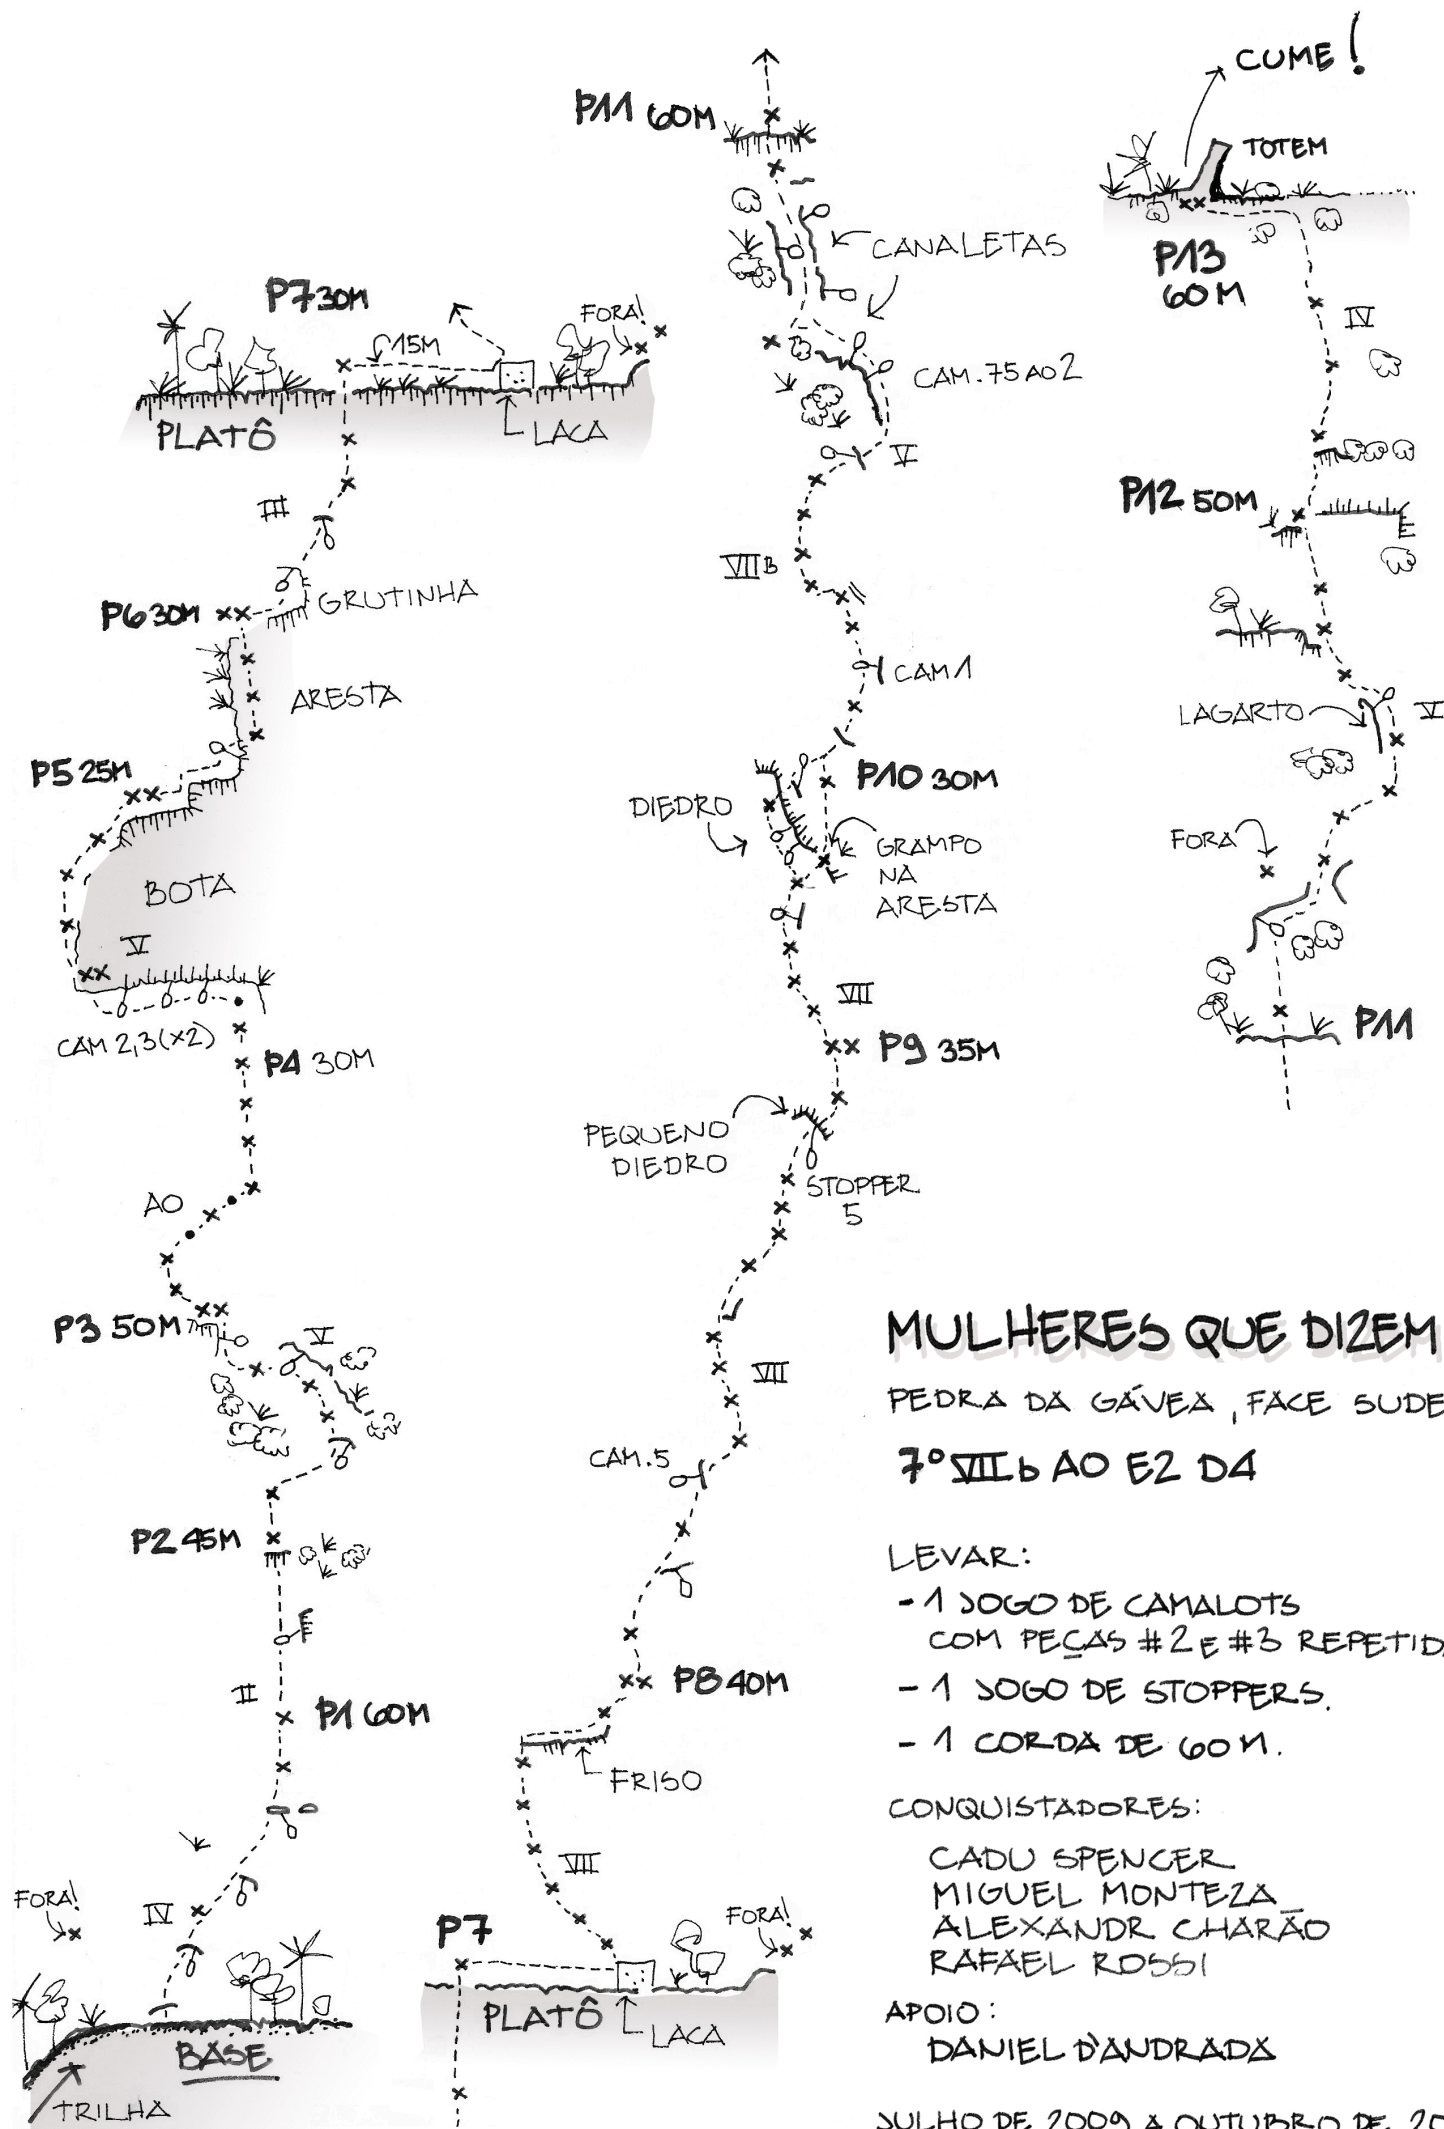 P7 30M
15M
FORA!
PLATÔ
LACA
III
GRUTINHA
P6 30M
ARESTA
P5 25M
BOTA
V
CAM 2,3(X2)
P4 30M
A0
P3 50M
V
P2 45M
II
P1 60M
FORA!
IV
BASE
TRILHA
P11 60M
CANALETAS
CAM .75 AO 2
V
VIIB
CAM 1
P10 30M
DIEDRO
GRAMPO
NA
ARESTA
VII
P9 35M
PEQUENO
DIEDRO
STOPPER
5
VII
CAM.5
P8 40M
FRISO
VII
P7
FORA!
PLATÔ
LACA
CUME!
TOTEM
P13
60M
IV
P12 50M
LAGARTO
V
FORA
P11
MULHERES QUE DIZEM
PEDRA DA GÁVEA, FACE SUDE
7º VIIb A0 E2 D4
LEVAR:
- 1 JOGO DE CAMALOTS
COM PEÇAS #2 E #3 REPETIDA
- 1 JOGO DE STOPPERS.
- 1 CORDA DE 60M.
CONQUISTADORES:
CADU SPENCER
MIGUEL MONTEZA
ALEXANDR CHARÃO
RAFAEL ROSSI
APOIO:
DANIEL D'ANDRADA
JULHO DE 2009 A OUTUBRO DE 20